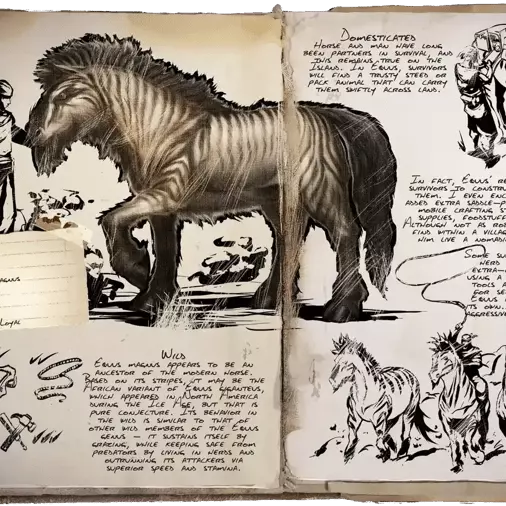 Domesticated
Horse and man have long
been partners in survival, and
this remains true on the
Island. In Equus, survivors
will find a trusty steed or
pack animal that can carry
them swiftly across land.
In fact, Equus' re
survivors to constru
them. I even enc
added extra saddle-p
mobile crafting s
supplies, foodstuff
Although not as rob
find within a villag
him live a nomadi
Some su
herd
extra-
using a
tools a
for se
Equus i
its own.
aggressive
magnus
Loyal
Wild
Equus magnus appears to be an
ancestor of the modern horse.
Based on its stripes, it may be the
African variant of Equus giganteus,
which appeared in North America
during the Ice Age, but that is
pure conjecture. Its behavior in
the wild is similar to that of
other wild members of the Equus
genus – it sustains itself by
grazing, while keeping safe from
predators by living in herds and
outrunning its attackers via
superior speed and stamina.